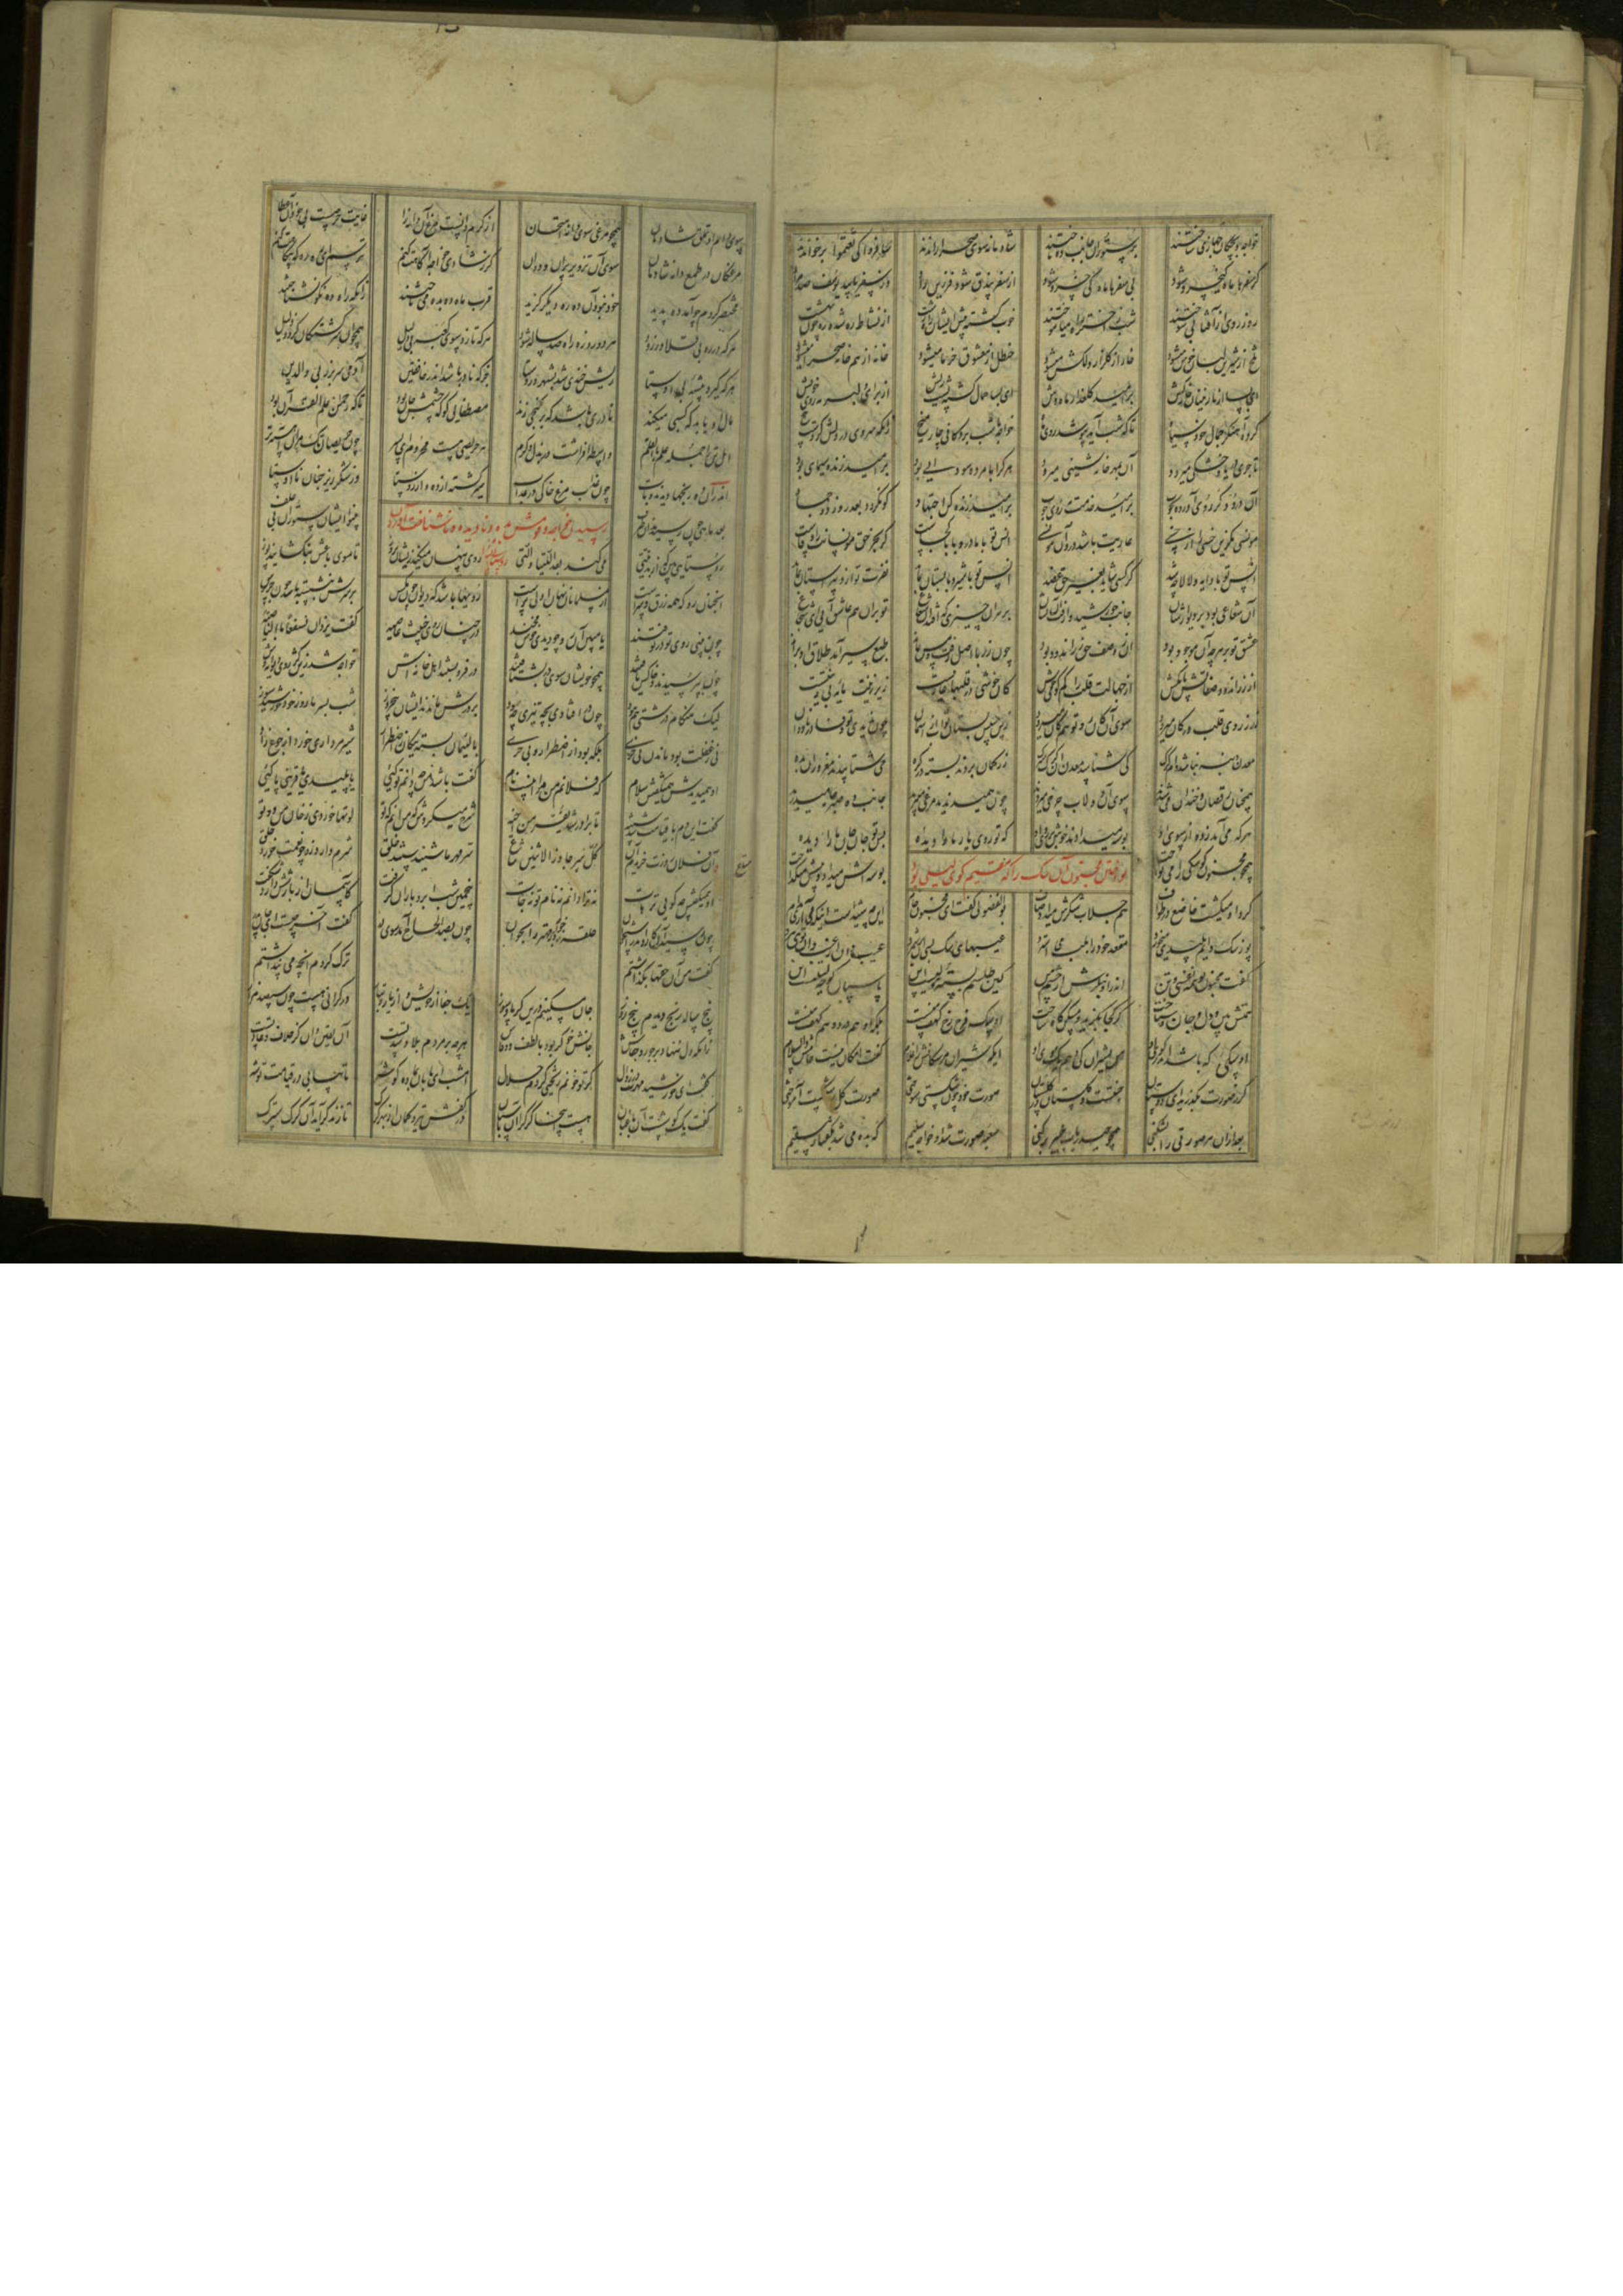 خواجه و بچگان جهازی ساختند بر ستوران جانب ده تاختند شادمانه سوی صحرا راندند سافروا کی تغنموا برخواندند
کز سفرها ماه کیخسرو شود بی سفرها ماه کی خسرو شود از سفر بیدق شود فرزین راد وز سفر یابید یوسف صد مراد
روز روی از آفتابی سوختند شب ز اختر راه می آموختند خوب گشته پیش ایشان راه زشت از نشاط ده شده ره چون بهشت
تلخ از شیرین لبان خوش میشود خار از گلزار دلکش میشود حنظل از معشوق خرما میشود خانه از همخانه صحرا میشود
ای بسا از نازنینان خارکش بر امید گلعذار ماه وش ای بسا حمال گشته پشت ریش از برای دلبر مه روی خویش
کرده آهنگر جمال خود سیاه تا که شب آید ببوسد روی ماه خواجه تا شب بر دکانی چار میخ زانکه سروی در دلش کردست بیخ
تاجری دریا و خشکی میرود آن بمهر خانه شینی میرود هر که را با مرده سودایی بود بر امید زنده سیمایی بود
آن دروگر روی آورده بچوب بر امید خدمت مه روی خوب بر امید زنده کن اجتهاد کو نگردد بعد روزی دو جماد
مونسی مگزین خسی را از خسی عاریت باشد درو آن مونسی انس تو با مادر و بابا کجاست گر بجز حق مونسانت را وفاست
انس تو با دایه و لالا چه شد گر کسی شاید بغیر حق عضد انس تو با شیر و با پستان نماند نفرت تو از دبیرستان نماند
آن شعاعی بود بر دیوارشان جانب خورشید وا رفت آن نشان بر هر آن چیزی که افتد آن شعاع تو بر آن هم عاشق آیی ای شجاع
عشق تو بر هر چه آن موجود بود آن ز وصف حق زراندود بود چون زری با اصل رفت و مس بماند طبع سیر آمد طلاق او براند
از زراندود صفاتش پا بکش از جهالت قلب را کم گوی خوش کان خوشی در قلبها عاریتست زیر زینت مایه بی زینتست
زر ز روی قلب در کان میرود سوی آن کان رو تو هم کان میرود
همچنان خندان و رقصان میشدند سوی آن دولاب چرخی میزدند چون همی دیدند مرغی میپرید جانب ده صبر جامه میدرید
هر که می آمد ز ده از سوی او بوسه میدادند خوش بر روی او که تو روی یار ما را دیده پس تو جان جان ما را دیده
نواختن مجنون آن سک را که مقیم کوی لیلی بود
همچو مجنون کو سکی را می نواخت بوسه اش میداد و پیشش میگداخت
گرد او میگشت خاضع در طواف هم جلاب شکرش میداد صاف بوالفضولی گفت ای مجنون خام این چه شیدست اینکه می آری مدام
پوز سک دایم پلیدی میخورد مقعد خود را بلب می استرد عیبهای سک بسی او بر شمرد عیب دان از غیب دان بویی نبرد
گفت مجنون تو همه نقشی و تن اندرا و بنگرش از چشم من کین طلسم بسته مولیست این پاسبان کوچه لیلیست این
همتش بین و دل و جان و شناخت کو کجا بگزید و مسکن گاه ساخت او سک فرخ رخ کهف منست بلکه او هم درد و هم لهف منست
آن سکی که باشد اندر کوی او من بشیران کی دهم یک موی او ایکه شیران مر سکانش را غلام گفت امکان نیست خامش والسلام
گر ز صورت بگذرید ای دوستان جنتست و گلستان در گلستان صورت خود چون شکستی سوختی صورت کل را شکست آموختی
بعد از آن هر صورتی را بشکنی همچو حیدر باب خیبر بر کنی سغبه صورت شد آن خواجه سلیم که بده می شد بگفتار سقیم
سوی دام آن تملق شادمان همچو مرغی سوی دانه امتحان از کرم دانست مرغ آن دانه را غایت حرص است نی جود آن عطا
مرغکان در طمع دانه شادمان سوی آن تزویر پران و دوان گر ز شادی خواجه آگاهت کنم ترسم ای رهرو که بیگاهت کنم
مختصر کردم چو آمد ده پدید خود نبود آن ده ره دیگر گزید قرب ماهی ده بده می تاختند زانکه راه ده نکو نشناختند
هر که در ره بی قلاوزی رود هر دو روزه راه صد ساله شود هر که تازد سوی کعبه بی دلیل همچو این سرگشتگان گردد ذلیل
هر که گیرد پیشه بی اوستا ریش خندی شد بشهر و روستا جز که نادر باشد اندر خافقین آدمی سر بر زند بی والدین
مال او یابد که کسبی میکند نادری باشد که بر گنجی زند مصطفایی کو که جسمش جان بود تا که رحمن علم القرآن بود
اهل تن را جمله علم بالقلم واسطه افراشت در بذل و کرم هر حریصی هست محروم ای پسر چون حریصان تک مرو آهسته تر
اندر آن ره رنجها دیدند و تاب چون عذاب مرغ خاکی در عذاب سیر گشته از ده و از روستا وز شکر ریز چنان نا اوستا
رسیدن خواجه و قومش بده و نادیده و ناشناخت آوردن روستایی
بعد ماهی چون رسیدند آن طرف بینوا ایشان ستوران بی علف
روستایی بین که از بد نیتی می کند بعد اللتیا و التی روی پنهان میکند زیشان بروز تا سوی باغش بنگشایند پوز
آنچنان رو که همه زرق و شرست از مسلمانان نهان اولی ترست رویها باشد که دیوان چون مگس بر سرش بنشسته باشد چون حرس
چون ببینی روی او در تو فتند یا مبین آن رو چو دیدی خوش مخند در چنان روی خبیث عاصیه گفت یزدان نسفعا بالناصیه
چون بپرسیدند و خانه ش یافتند همچو خویشان سوی در بشتافتند در فرو بستند اهل خانه اش خواجه شد زین کژ روی دیوانه وش
لیک هنگام درشتی هم نبود چون در افتادی بچه تیزی چه سود بر درش ماندند ایشان پنج روز شب بسرما روز خود خورشید سوز
نی ز غفلت بود ماندن نی خری بلکه بود از اضطرار و بی خری با لئیمان بسته نیکان ز اضطرار شیر مرداری خورد از جوع زار
او همی دیدش همی گفتش سلام که فلانم من مرا اینست نام گفت باشد من چه دانم تو کیی یا پلیدی یا قرین پاکیی
شرح میکردش که من آنم که تو لوتها خوردی ز خوان من دو تو
او همی گفتش چه گویی ترهات نه ترا دانم نه نام تو نه جات پنجمین شب ابر و باران گرفت کآسمان از بارشش دارد شگفت
چون رسید آن کارد اندر استخوان حلقه زد خواجه که مهتر را بخوان چون بصد الحاح آمد سوی در گفت آخر چیست ای جان پدر
گفت من آن حقها بگذاشتم ترک کردم آنچه می پنداشتم
پنج ساله رنج دیدم پنج روز جان مسکینم درین گرما و سوز یک جفا از خویش و از یار و تبار در گرانی هست چون سیصد هزار
زانکه دل ننهاد بر جور و جفاش جانش خوگر بود با لطف و وفاش هر چه بر مردم بلا و شدتست آن یقین دان کز خلاف عادتست
گفت ای خورشید مهرت در زوال گر تو خونم ریختی کردم حلال امشب باران بما ده گوشه تا بیابی در قیامت توشه
گفت یک گوشه ست آن باغبان هست اینجا گرگ را او پاسبان در کفش تیر و کمان از بهر گرگ تا زند گر آید آن گرگ سترگ